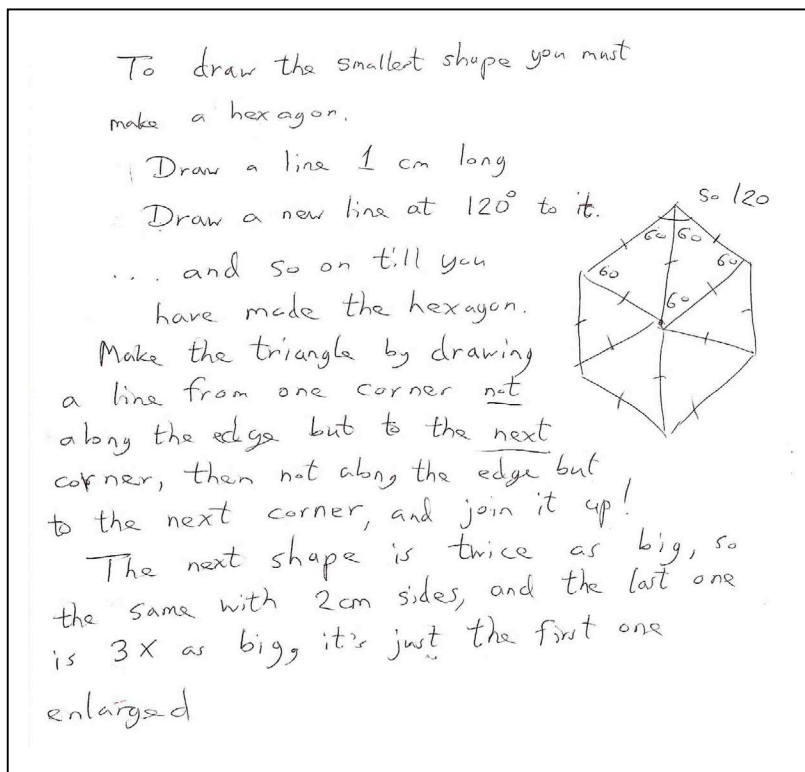 To draw the smallest shape you must
make a hexagon.
Draw a line 1 cm long
Draw a new line at 120° to it.
... and so on till you
have made the hexagon.
Make the triangle by drawing
a line from one corner not
along the edge but to the next
corner, then not along the edge but
to the next corner, and join it up!
The next shape is twice as big, so
the same with 2cm sides, and the last one
is 3X as big, it's just the first one
enlarged
so 120
60 60
60 60
60